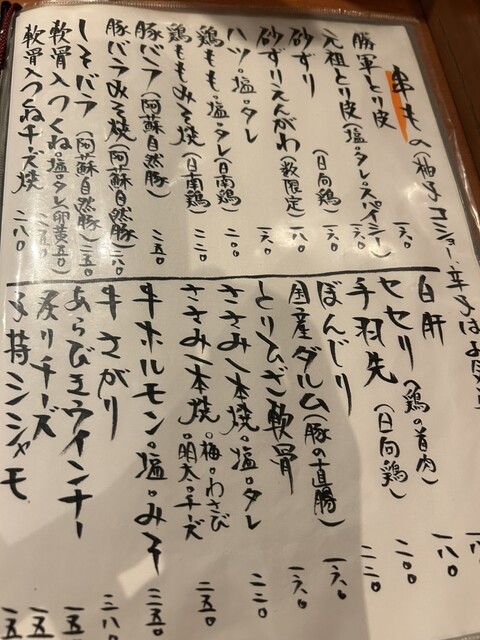 串もの(柚子コショー、辛子は
勝軍とり皮
元祖とり皮(塩・タレ・スパイシー) 一六〇
砂ずり(日向鶏) 一八〇
砂ずりえんがわ(数限定) 一六〇
ハツ・塩・タレ 一六〇
鶏もも・塩・タレ(日南鶏) 二〇〇
鶏ももみそ焼(日南鶏) 二二〇
豚バラ(阿蘇自然豚) 二五〇
豚バラみそ焼(阿蘇自然豚) 二八〇
しそバラ(阿蘇自然豚) 二五〇
軟骨入つくね・塩・タレ(卵黄五〇) 二五〇
軟骨入つくねチーズ焼 二八〇
白肝 一八〇
セセリ(鶏の首肉) 一八〇
手羽先(日向鶏) 二〇〇
ぼんじり 二二〇
国産ダルム(豚の直腸) 一六〇
とりひざ軟骨 一六〇
ささみ一本焼・塩・タレ 二二〇
ささみ一本焼・梅・わさび・明太・チーズ 二五〇
牛ホルモン・塩・みそ 二五〇
牛さがり 三八〇
あらびきウインナー 二五〇
炙りチーズ 二五〇
子持シシャモ 二五〇